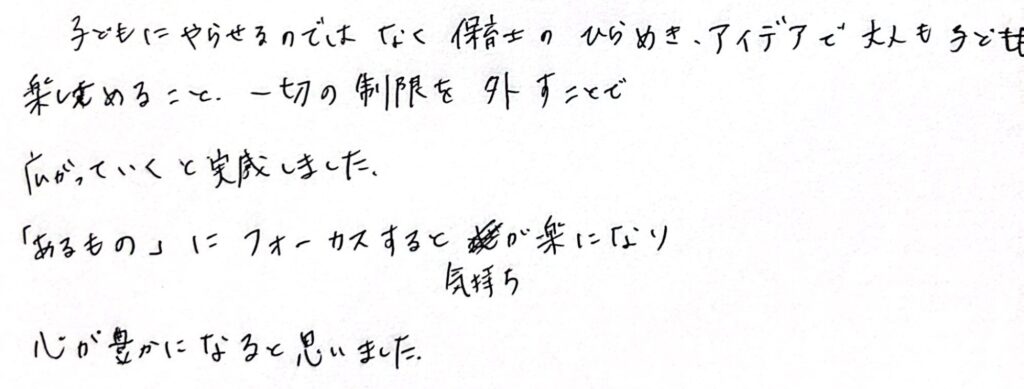 子どもにやらせるのではなく保育士のひらめき、アイデアで大人も子ども
楽しめること、一切の制限を外すことで
広がっていくと実感しました。
「あるもの」にフォーカスすると が楽になり
気持ち
心が豊かになると思いました。